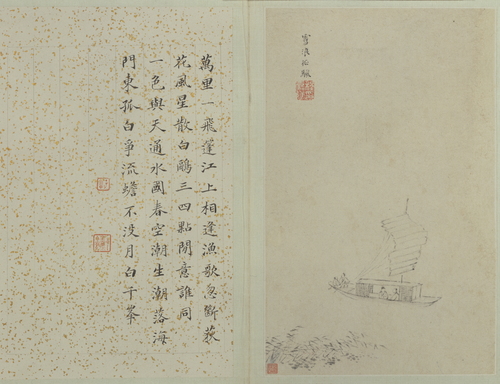 雪浪
萬里一飛蓬江上相逢漁歌忽斷荻
花風星散白鷗三四點閒意誰同
一色與天通水國春空潮生潮落海
門東孤白爭流蟾不没月白千峯